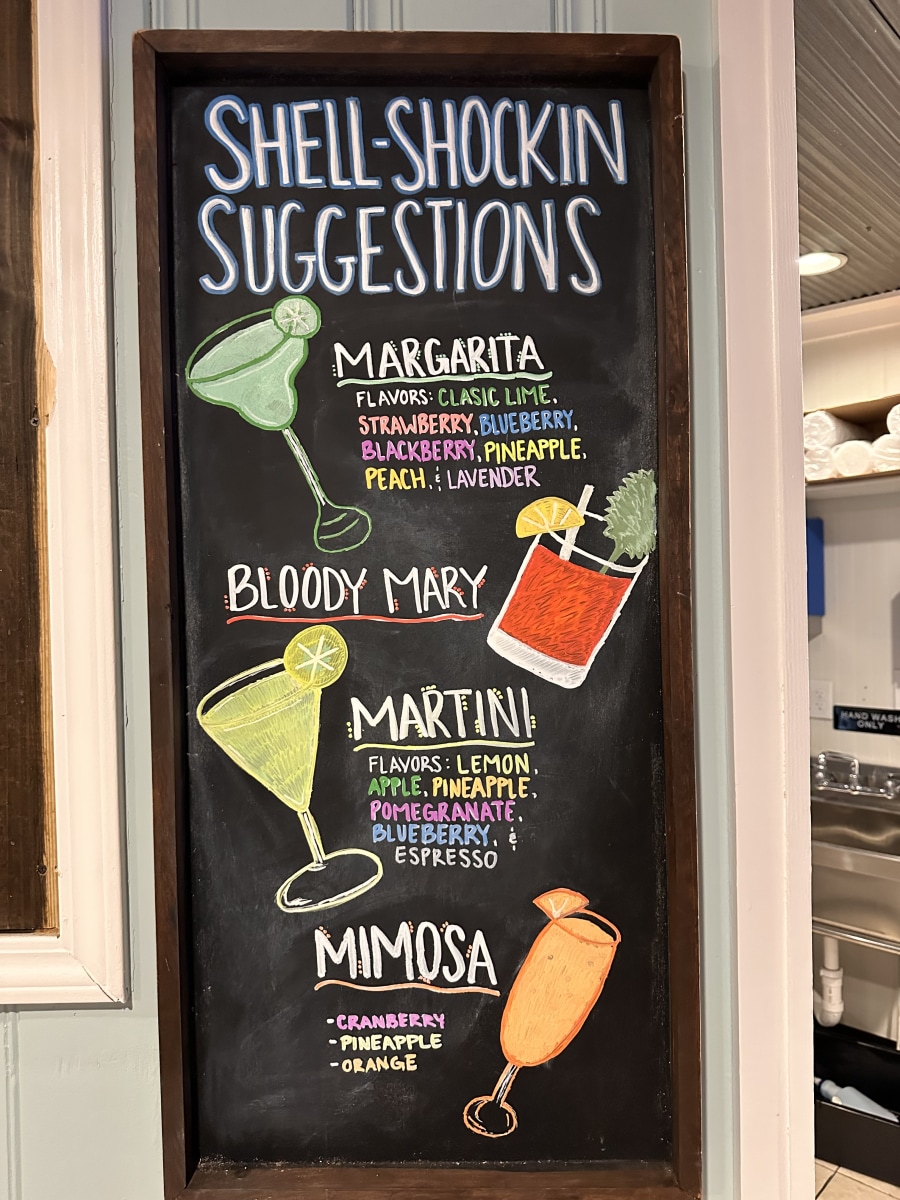 SHELL-SHOCKIN
SUGGESTIONS
MARGARITA
FLAVORS: CLASIC LIME,
STRAWBERRY, BLUEBERRY,
BLACKBERRY, PINEAPPLE,
PEACH, & LAVENDER
BLOODY MARY
MARTINI
FLAVORS: LEMON,
APPLE, PINEAPPLE,
POMEGRANATE,
BLUEBERRY, &
ESPRESSO
MIMOSA
-CRANBERRY
-PINEAPPLE
-ORANGE
HAND WASH
ONLY